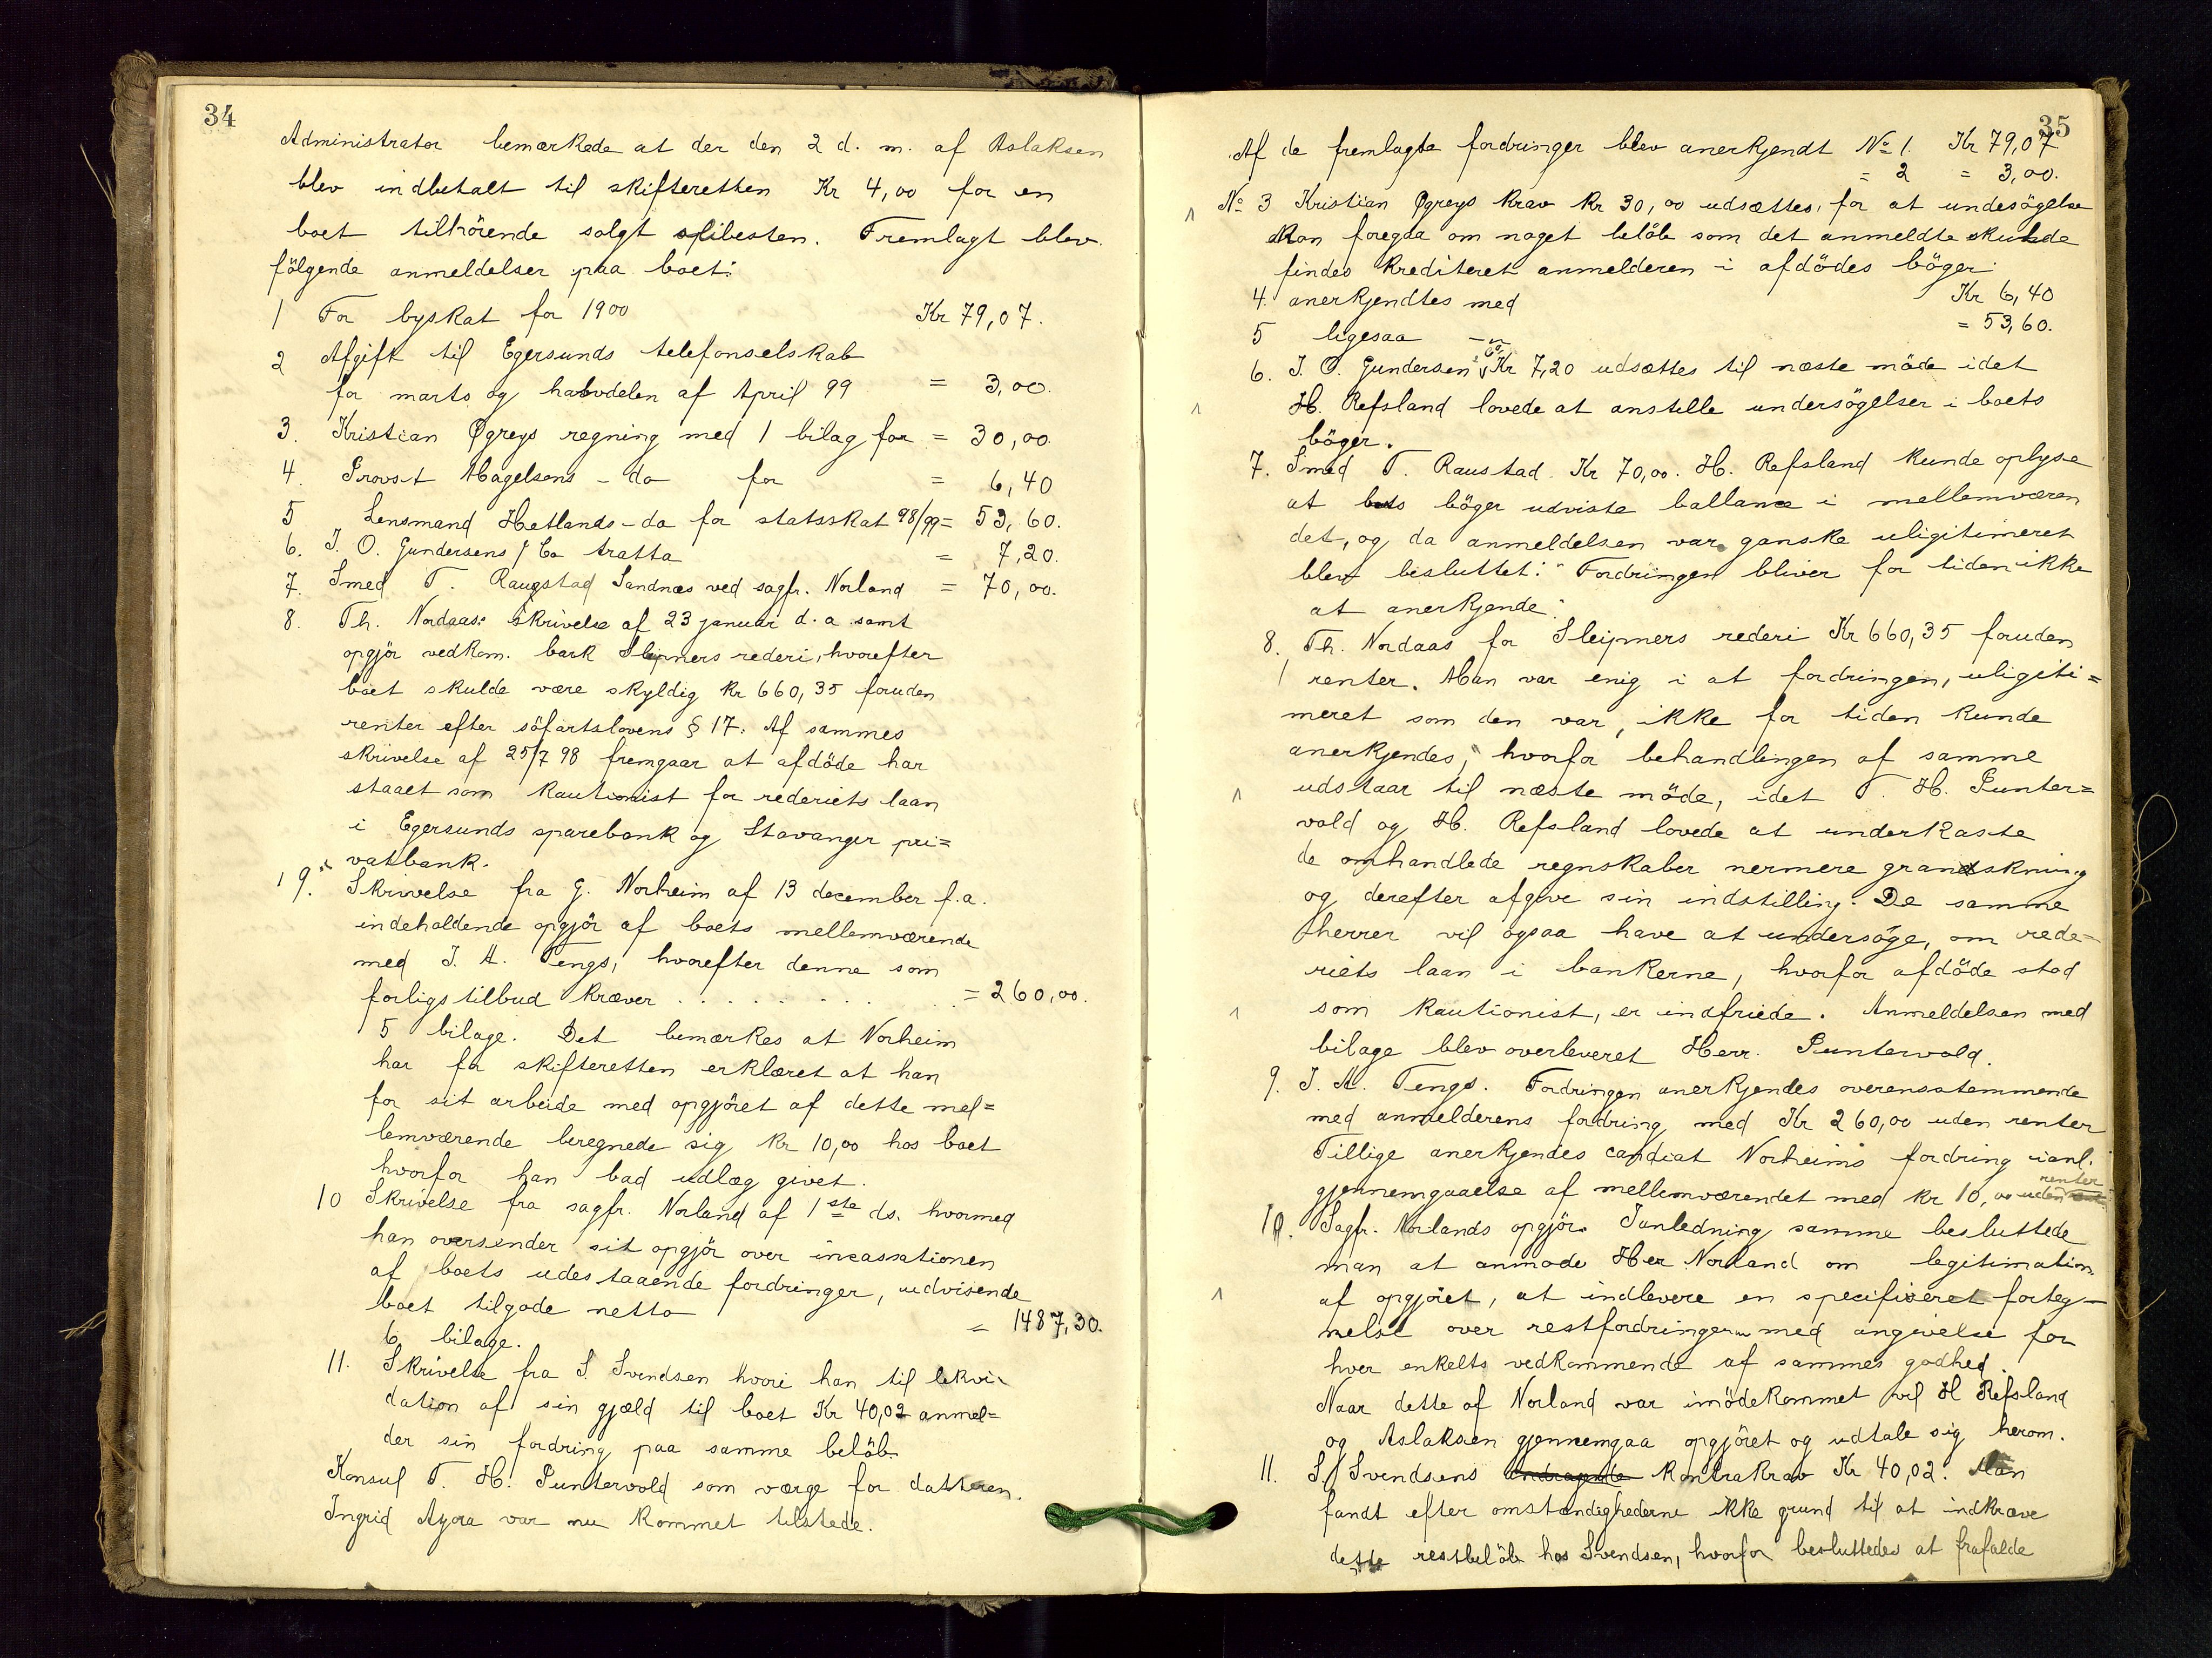 34
Administrator bemærkede at der den 2 d. m. af Aslaksen
blev indbetalt til skifteretten Kr 4,00 for en
boet tilhörende solgt slibesten. Fremlagt blev
fölgende anmeldelser paa boet:
1 For byskat for 1900 Kr 79,07.
2 Afgift til Egersunds telefonselskab
for marts og halvdelen af April 99 = 3,00.
3. Kristian Øgreys regning med 1 bilag for = 30,00.
4. Provst Magelsens - do for = 6,40
5 Lensmand Hetlands - do for statsskat 98/99 = 53,60.
6. J. O. Gundersens & Co tratta = 7,20.
7. Smed T. Raugstad Sandnæs ved sagfr. Norland = 70,00.
8. Th. Nordaas: Skrivelse af 23 januar d. a. samt
opgjör vedkom. bark Sleipners rederi, hvorefter
boet skulde være skyldig Kr 660,35 foruden
renter efter söfartslovens § 17. Af sammes
skrivelse af 25/7 98 fremgaar at afdöde har
staaet som Kautionist for rederiets laan
i Egersunds sparebank og Stavanger pri=
vatbank.
9. Skrivelse fra G. Norheim af 13 december f.a.
indeholdende opgjör af boets mellemværende
med J. A. Tengs, hvorefter denne som
forligstilbud Kræver . . . . . . . . = 260,00.
5 bilage. Det bemærkes at Norheim
har for skifteretten erklæret at han
for sit arbeide med opgjöret af dette mel=
lemværende beregnede sig Kr 10,00 hos boet
hvorfor han bad udlæg givet.
10 Skrivelse fra sagfr. Norland af 1ste ds. hvormed
han oversender sit opgjör over incassationen
af boets udestaaende fordringer, udvisende
boet tilgode netto = 1487,30.
6 bilage.
11. Skrivelse fra S. Svendsen hvori han til likvi-
dation af sin gjæld til boet Kr 40,02 anmel=
der sin fordring paa samme belöb.
Konsul T. H. Puntervold som værge for datteren
Ingrid Ayora var nu Kommet tilstede.
35
Af de fremlagte fordringer blev anerkjendt No 1. Kr 79,07
= 2 = 3,00.
No 3 Kristian Øgreys Krav Kr 30,00 udsættes, for at undesögelse
Kan foregaa om noget belöb som det anmeldte skulde
findes Krediteret anmelderen i afdödes böger.
4. anerkjendtes med Kr 6,40
5 ligesaa - " - = 53,60.
6. J. O. Gundersen & Co Kr 7,20 udsættes til næste möde idet
H. Refsland lovede at anstille undersögelser i boets
böger.
7. Smed T. Raustad Kr 70,00. H. Refsland Kunde oplyse
at boets böger udviste ballance i mellemværen
det, og da anmeldelsen var ganske uligitimeret
blev besluttet: "Fordringen bliver for tiden ikke
at anerkjende".
8. Th. Nordaas for Sleipners rederi Kr 660,35 foruden
renter. Man var enig i at fordringen, uligiti=
meret som den var, ikke for tiden Kunde
anerkjendes, hvorfor behandlingen af samme
udstaar til næste möde, idet T. H. Punter=
vold og H. Refsland lovede at underkaste
de omhandlede regnskaber nermere granskning
og derefter afgive sin indstilling. De samme
herrer vil ogsaa have at undersöge, om rede=
riets laan i bankerne, hvorfor afdöde stod
som Kautionist, er indfriede. Anmeldelsen med
bilage blev overleveret Herr. Puntervold.
9. J. A. Tengs. Fordringen anerkjendes overensstemmende
med anmelderens fordring med Kr 260,00 uden renter
Tillige anerkjendes candiat Norheims fordring ianl.
gjennemgaaelse af mellemværendet med Kr 10,00 uden renter
10. Sagfr. Norlands opgjör. Ianledning samme besluttede
man at anmode Her Norland om legitimation
af opgjöret, at indlevere en specifiseret forteg-
nelse over restfordringer med angivelse for
hver enkelts vedkommende af sammes godhed.
Naar dette af Norland var imödekommet vil H Refsland
og Aslaksen gjennemgaa opgjöret og udtale sig herom.
11. S. Svendsens Kontrakrav Kr 40,02. Man
fandt efter omstændighederne ikke grund til at indkræve
dette restbelöb hos Svendsen, hvorfor besluttedes at frafalde